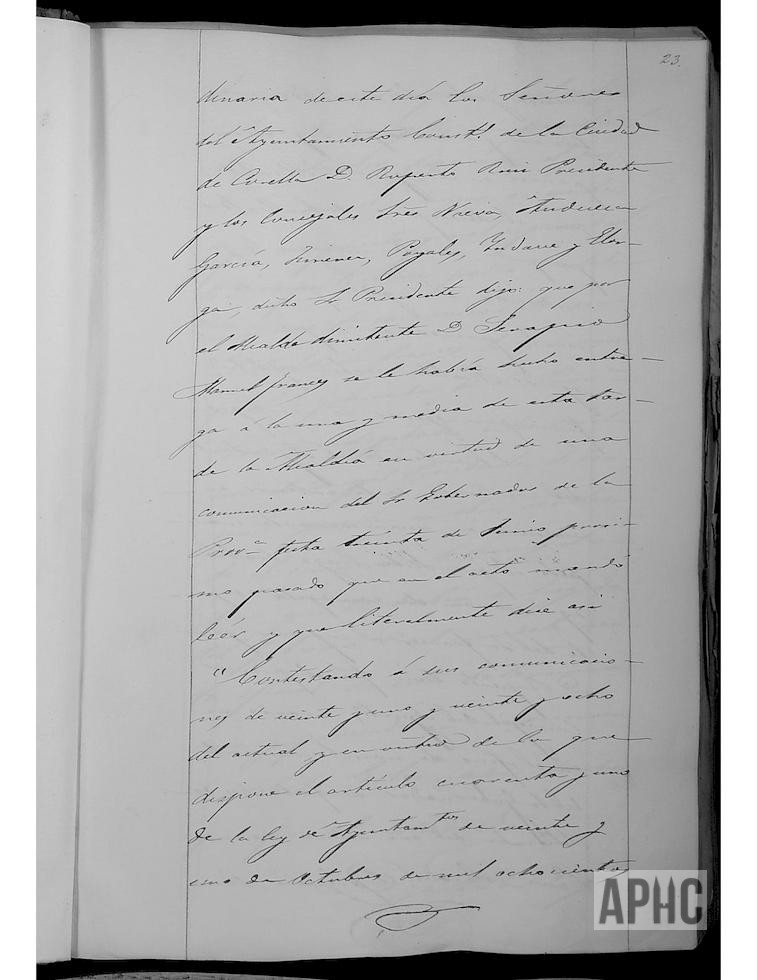 23.
dinaria de este día los Señores
del Ayuntamiento Const.l de la Ciudad
de Corella D. Ruperto Ruiz Presidente
y los Concejales Sres Navea, Andueza
García, Jimenez, Poyales, Yndave y Elor-
ga, dicho Sr Presidente dijo: que por
el Alcalde dimitente D. Serapio
Manuel frances se le habia hecho entre-
ga á la una y media de esta tar-
de la Alcaldía en virtud de una
comunicacion del Sr Gobernador de la
Prov.a fecha treinta de Junio proxi-
mo pasado que en el acto mandó
leér y que literalmente dice asi
"Contestando á sus comunicacio-
nes de veinte y uno y veinte y ocho
del actual y en virtud de lo que
dispone el artículo cuarenta y uno
de la ley de Ayuntamtos de veinte y
uno de Octubre de mil ochocientos
APHC